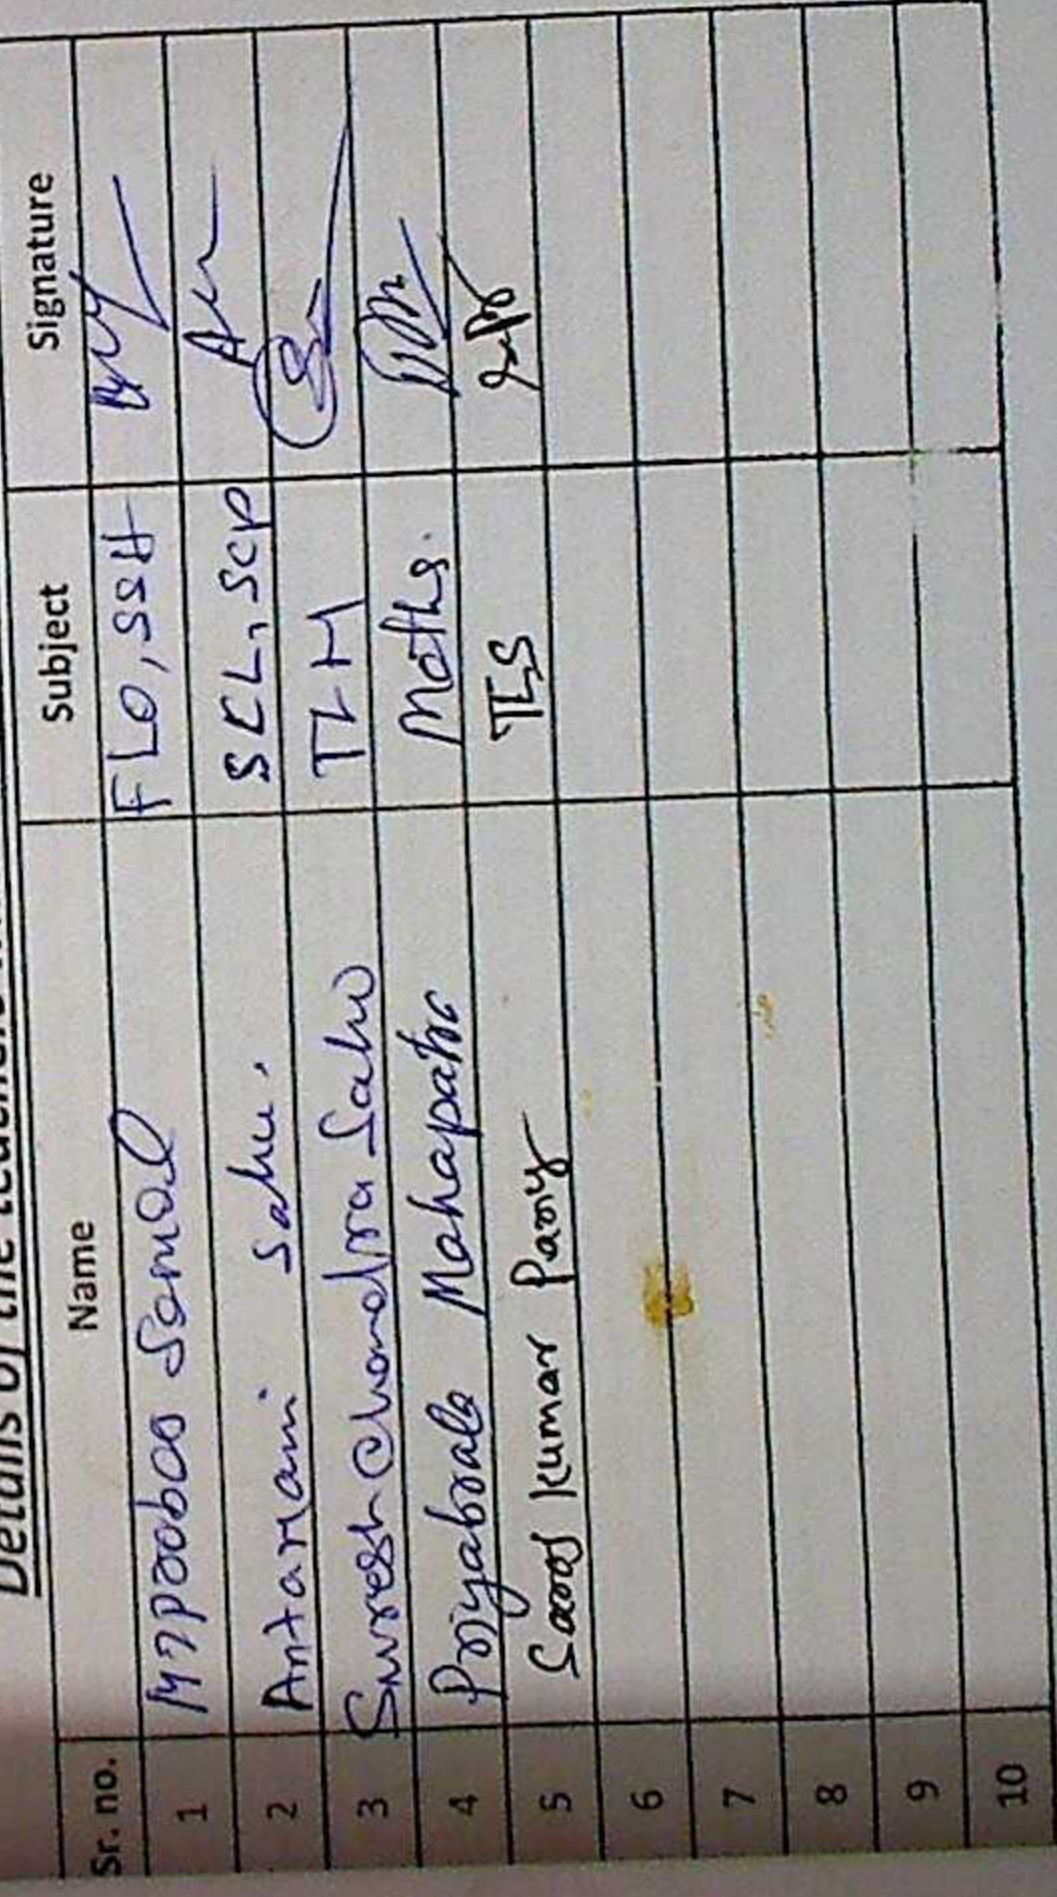 Details of the
Sr. no. Name Subject Signature
1 Samal FLO, SSH
2 Antaryami Sahu. SCL, SCP
3 Suresh Chandra Sahu TLH
4 Priyabrata Mahapatra Maths.
5 Saroj Kumar Parry TLS
6
7
8
9
10